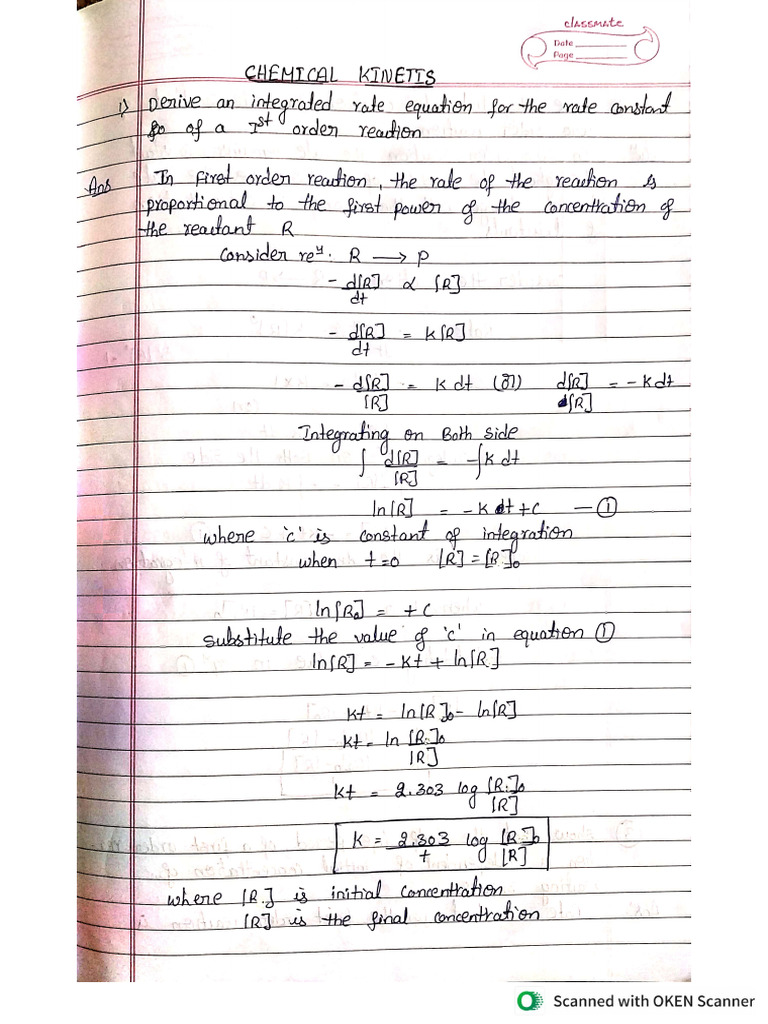 classmate
Date
Page
CHEMICAL KINETIS
1) Derive an integrated rate equation for the rate constant
of a Ist order reaction
Ans In first order reaction, the rate of the reaction is
proportional to the first power of the concentration of
the reactant R
Consider reⁿ. R ⟶ P
- d[R]/dt ∝ [R]
- d[R]/dt = K[R]
- d[R]/[R] = K dt (or) d[R]/[R] = - K dt
Integrating on Both side
∫ d[R]/[R] = -∫K dt
ln[R] = - K t + C — ①
where 'c' is constant of integration
when t=0 [R] = [R]₀
ln[R₀] = + C
substitute the value of 'c' in equation ①
ln[R] = - Kt + ln[R]
Kt = ln[R]₀ - ln[R]
Kt = ln [R.]₀/[R]
Kt = 2.303 log [R.]₀/[R]
K = 2.303/t log [R.]₀/[R]
where [R.] is initial concentration
[R] is the final concentration
Scanned with OKEN Scanner